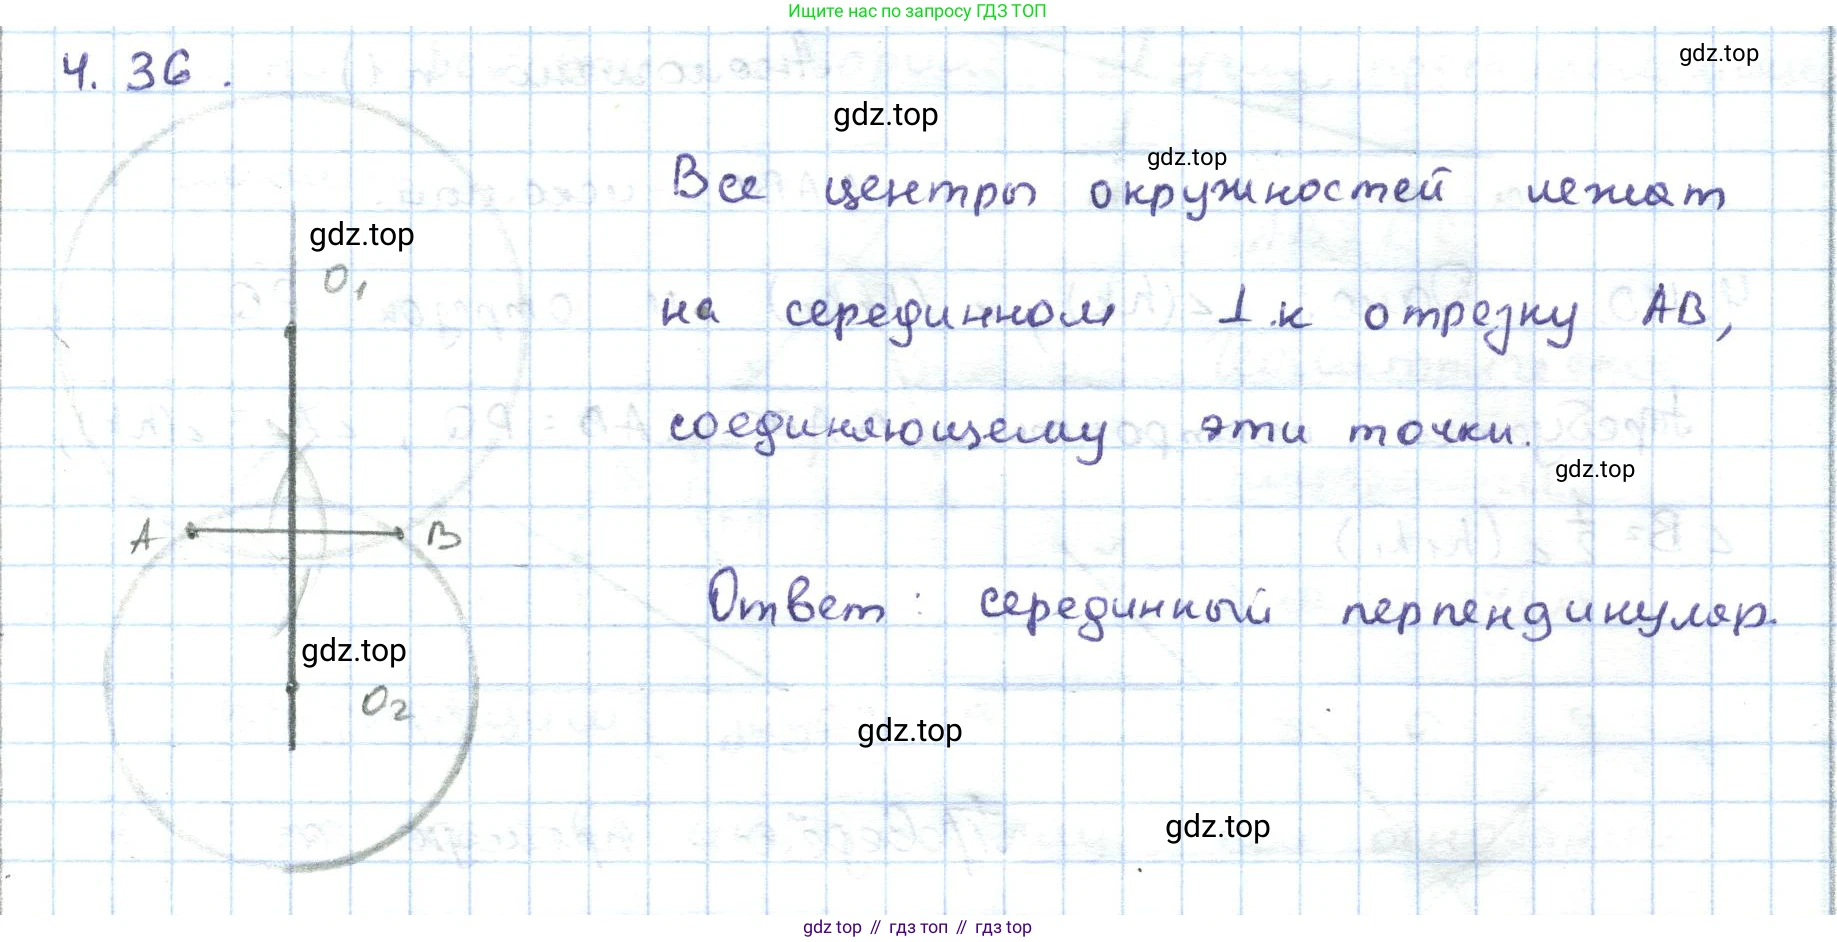 Ищите нас по запросу ГДЗ ТОП
4. 36.
gdz.top
gdz.top
gdz.top
Все центры окружностей лежат
gdz.top
O₁
на серединном ⊥ к отрезку AB,
соединяющему эти точки.
gdz.top
A B
Ответ: серединный перпендикуляр.
gdz.top
O₂
gdz.top
gdz.top
gdz top // гдз топ // гдз top